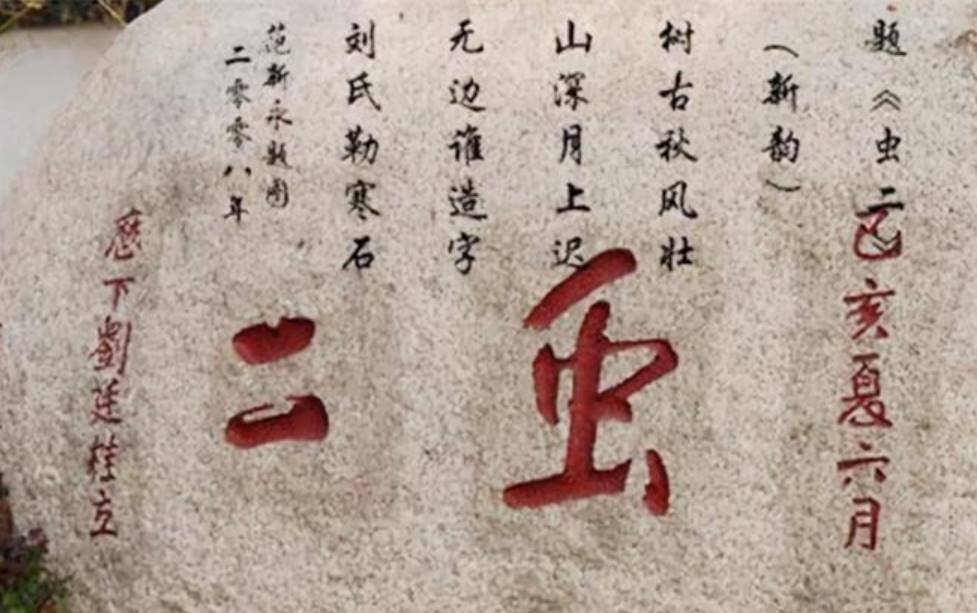 题《虫二》
（新韵）
树古秋风壮
山深月上迟
无边谁造字
刘氏勒寒石
范新永题图
二零零八年
己亥夏六月
虫
二
歷下劉廷桂立